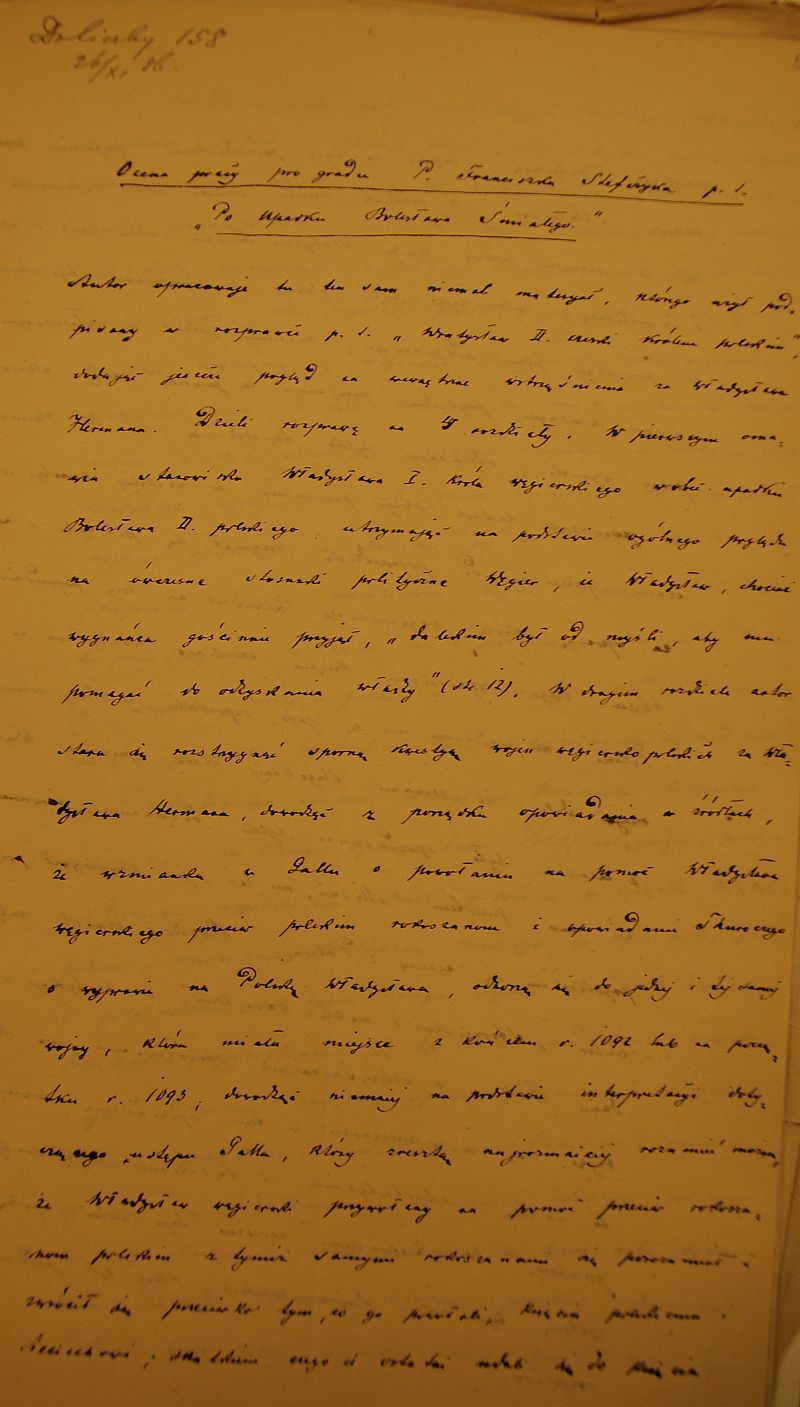 Do liczby 158
26/XI 86.
Ocena pracy pro gradu P. Franciszka Stefczyka p. t.
„Po upadku Bolesława Śmiałego."
Autor opracowuje tu ten sam niemal materyał, którego użył pod-
pisany w rozprawce p. t. „Wratysław II. czeski królem polskim",
dodając jeszcze pogląd na wewnętrzne wstrząśnienia za Władysława
Hermana. Dzieli rozprawę na 4 rozdziały. W pierwszym oma-
wia stanowisko Władysława I. króla węgierskiego wobec upadku
Bolesława II. polskiego, utrzymując na podstawie ogólnego poglądu
na ówczesne stosunki polityczne Węgier, że Władysław, chociaż
wygnańca gościnnie przyjął, „dalekim był od myśli, aby mu
pomagać do odzyskania władzy" (str. 12). W drugim rozdziale autor
stara się rozstrzygnąć sporną kwestyę wojen węgiersko polskich za Wła-
dysława Hermana, dowodząc z porządku opowiadania w źródłach,
że wzmianka w Gallu o powołaniu na pomoc Władysława
węgierskiego przeciw polskim rokoszanom i opowiadanie Thuroczego
o wyprawie na Polskę Władysława, odnoszą się do jednej i tej samej
wojny, która miała miejsce z końcem r. 1092 lub na począ-
tku r. 1093; dowodząc niemniej na podstawie interpretacyi doty-
czącego ustępu Galla, który zresztą najrozmaiciej rozumieć można,
że Władysław węgierski przywołany na pomoc przeciw rokosza-
nom polskim z tymiż samymi rokoszanami się porozumiał i
zwrócił się przeciwko tym, co go wezwali, księciu polskiemu i
Sieciechowi; skutkiem czego ci ostatni udali się do księcia